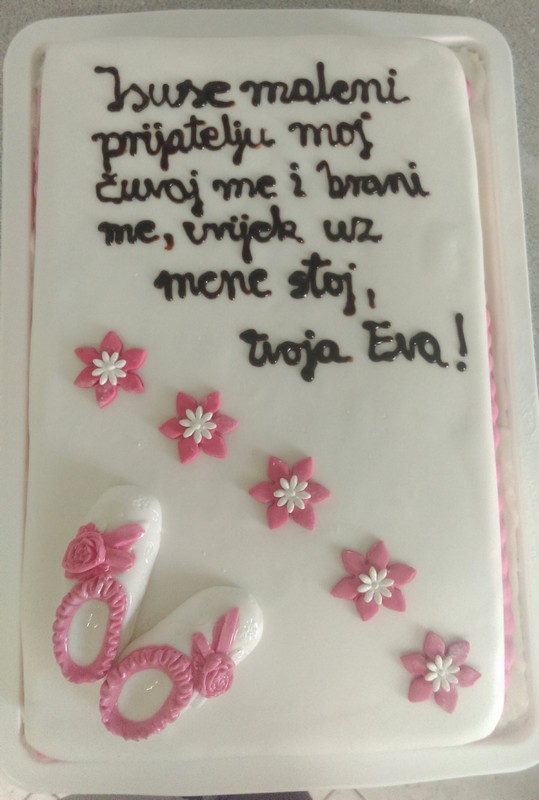 Isuse maleni
prijatelju moj
čuvaj me i brani
me, uvijek uz
mene stoj,
tvoja Eva!